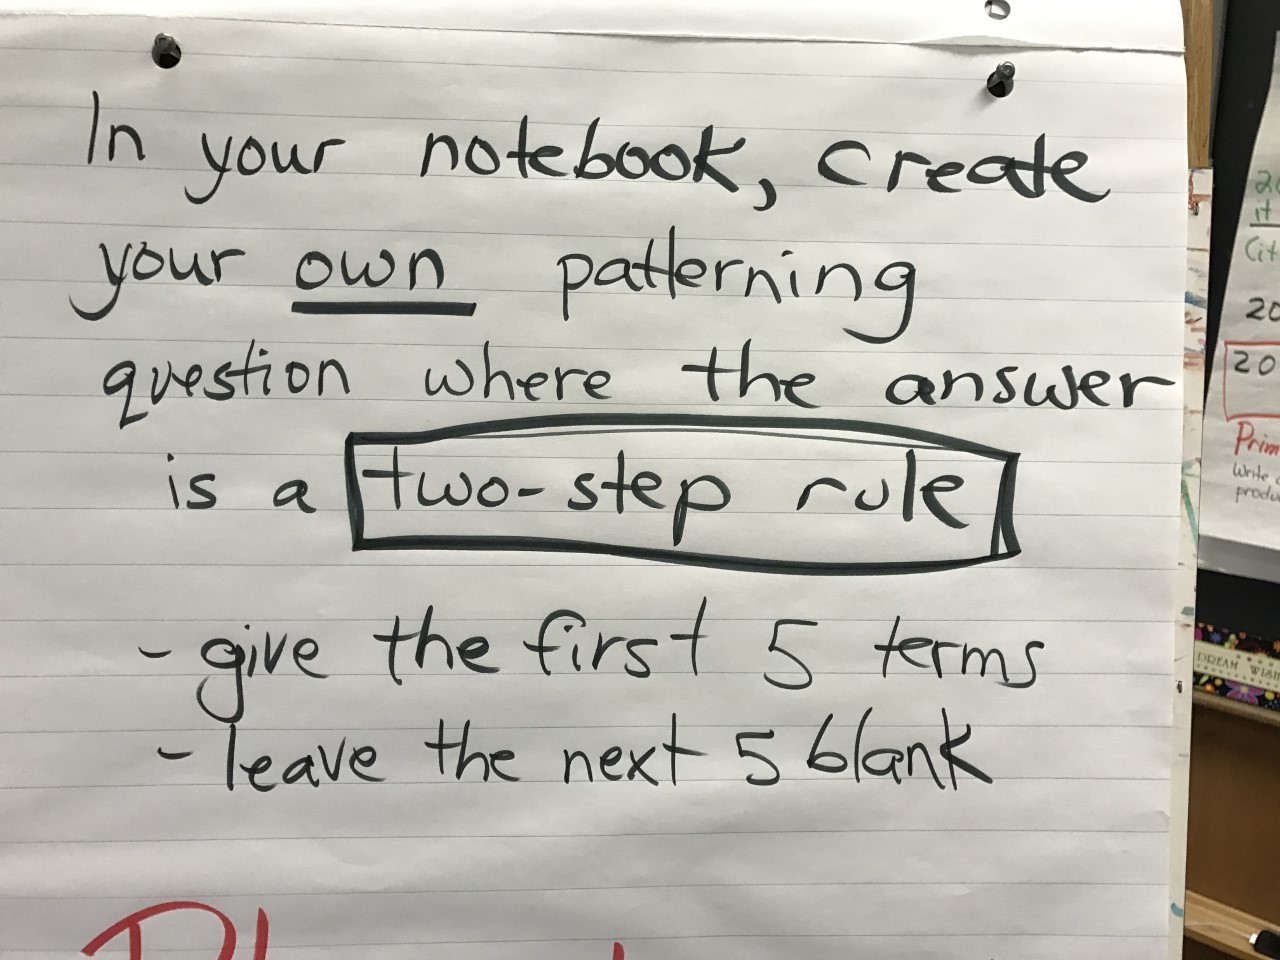 In your notebook, create
your own patterning
question where the answer
is a two-step rule
- give the first 5 terms
- leave the next 5 blank
20
Prim
Write
DREAM WISH